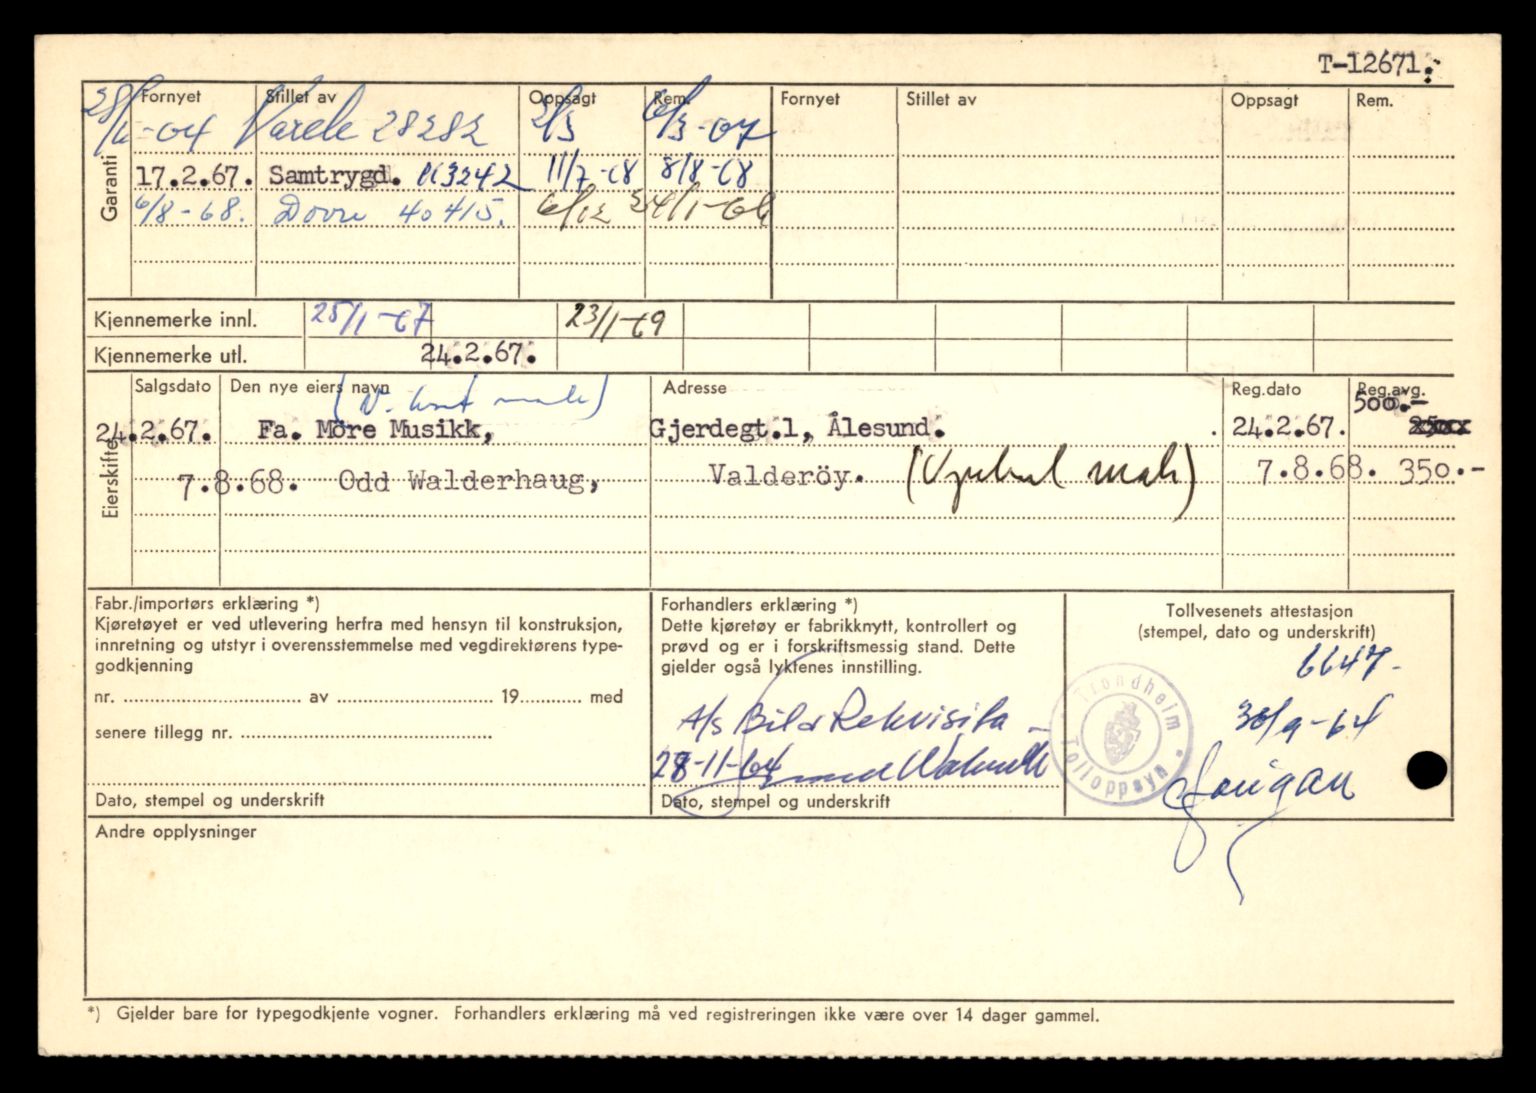 T-12671.
Fornyet Stillet av Oppsagt Rem. Fornyet Stillet av Oppsagt Rem.
28/11-64 28282 2/3 6/3-67
Garanti
17.2.67. Samtrygd. 113242 11/7-68 8/8-68
6/8-68. Dovre 40415. 6/12 24/1-69
Kjennemerke innl. 25/1-67 23/1-69
Kjennemerke utl. 24.2.67.
Salgsdato Den nye eiers navn Adresse Reg.dato Reg.avg.
500.-
24.2.67. Fa. Möre Musikk, Gjerdegt.1, Ålesund. 24.2.67.
7.8.68. Odd Walderhaug, Valderöy. 7.8.68. 350.-
Eierskifte
Fabr./importørs erklæring *)
Kjøretøyet er ved utlevering herfra med hensyn til konstruksjon,
innretning og utstyr i overensstemmelse med vegdirektørens type-
godkjenning
nr. av 19 med
senere tillegg nr.
Dato, stempel og underskrift
Forhandlers erklæring *)
Dette kjøretøy er fabrikknytt, kontrollert og
prøvd og er i forskriftsmessig stand. Dette
gjelder også lyktenes innstilling.
A/s Bil & Rekvisita
28-11-64
Dato, stempel og underskrift
Tollvesenets attestasjon
(stempel, dato og underskrift)
6647-
30/9-64
Trondheim
Tolloppsyn
Andre opplysninger
*) Gjelder bare for typegodkjente vogner. Forhandlers erklæring må ved registreringen ikke være over 14 dager gammel.